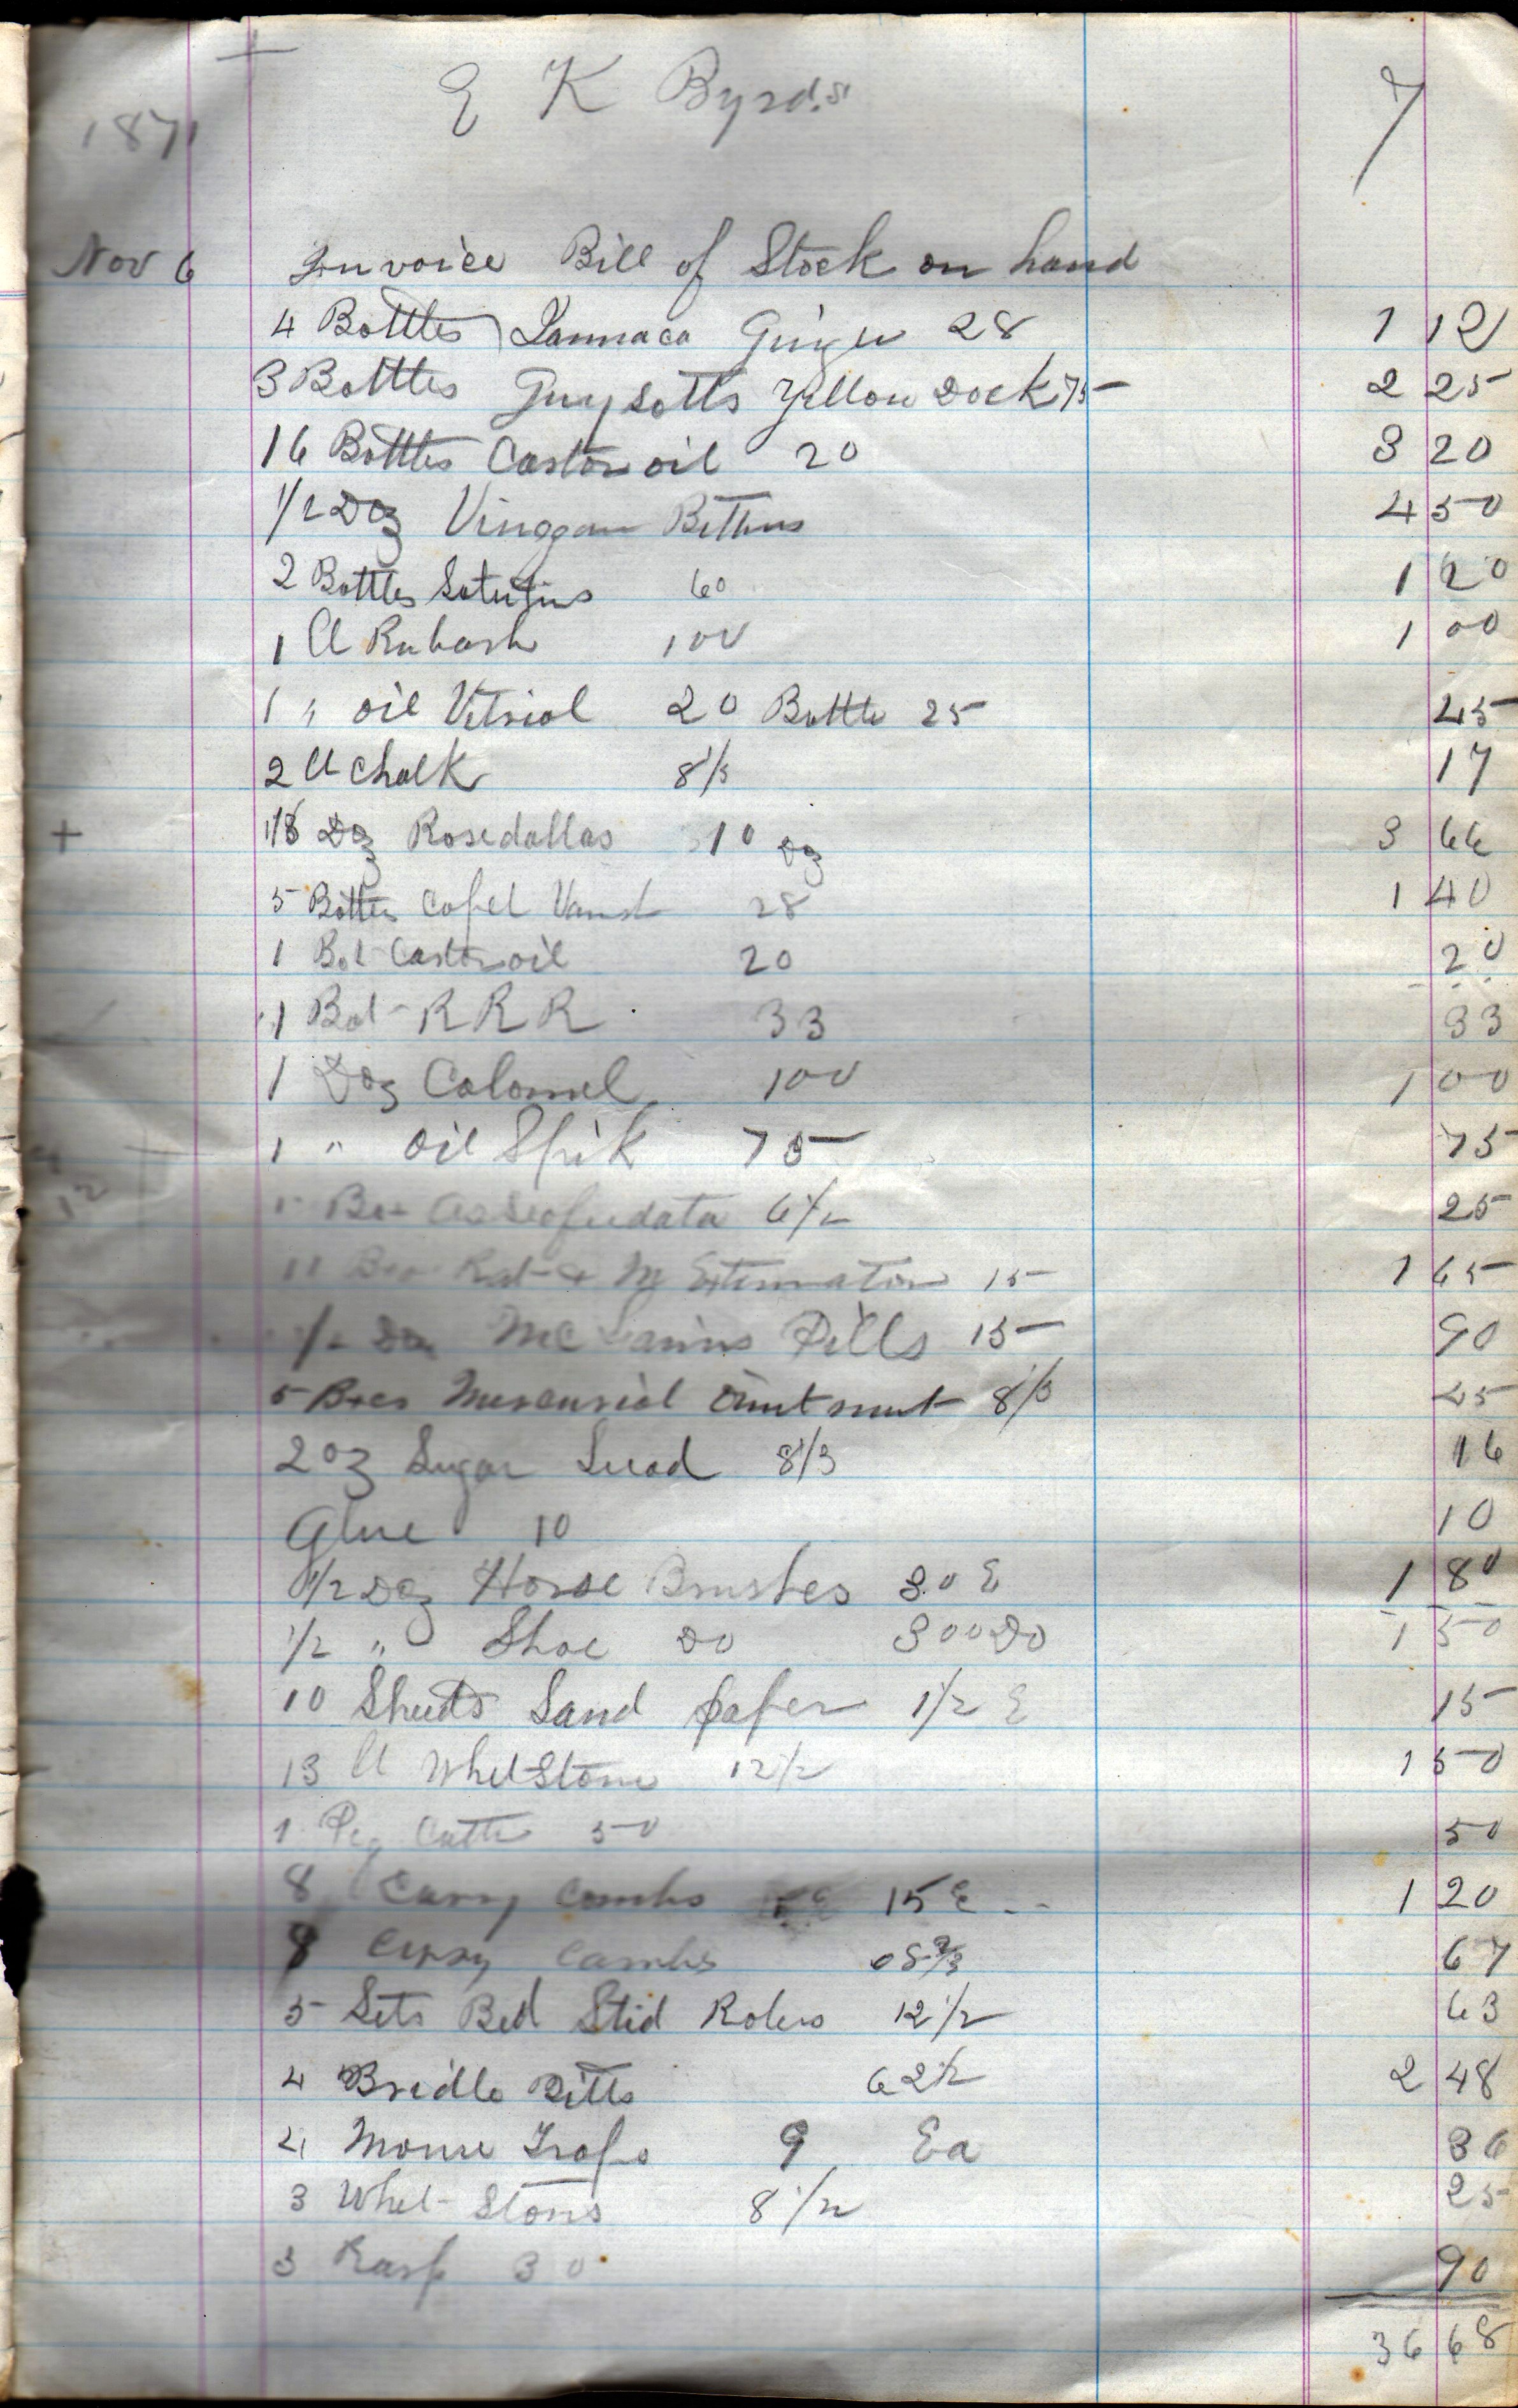 E K Byrd.s
7
1871
Nov 6 Invoice Bill of Stock on hand
4 Bottles Jammaca Ginger 28 1 12
3 Bottles Guysotts Yellow Dock 75 2 25
16 Bottles Castor oil 20 3 20
1/2 Doz Vinggar Bitters 4 50
2 Bottles 60 1 20
1 lb Rubarb 100 1 00
1 " oil Vitriol 20 Bottle 25 45
2 lb Chalk 8 1/3 17
+ Doz Rosedallas 10 Doz 3 66
5 Bottles Copel Varnsh 28 1 40
1 Bot Castor oil 20 20
1 Bot RRR 33 33
1 Doz Calomel 100 1 00
1 " oil Spik 75 75
Box Asseofeedata 6 1/2 25
11 Box Rat & M Extermator 15 1 65
1/2 Doz McLanins Pills 15 90
5 Boxes Mercurial Ointment 8 1/3 45
2 oz Sugar Lead 8 1/3 16
Glue 10 10
1/2 Doz Horse Brushes 30 E 1 80
1/2 " Shoe Do 300 Do 1 50
10 Sheets Sand paper 1 1/2 E 15
13 lb Whet Stone 12 1/2 1 50
1 Peg Cutte 50 50
8 Curry Combs 15 E 1 20
8 Curry Combs 08 2/3 67
5 Sets Bed Sted Rolers 12 1/2 63
4 Bridle Bitts 62 1/2 2 48
4 Mouse Traps 9 Ea 36
3 Whet Stons 8 1/2 25
3 Rasp 30 90
36 68